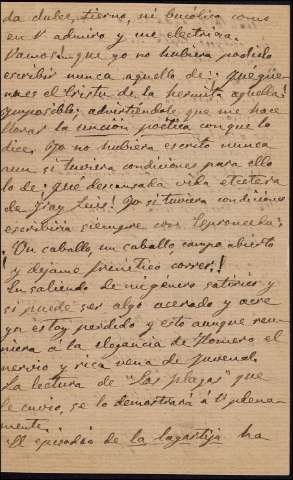 da dulce, tierno, ni bucólico como
en V admiro y me electriza.
Vamos! que yo no hubiera podido
escribir nunca aquello de ¡¡ Jueguen
unes el triste de la hermita aquella!
Imposible; advirtiendole que me hace
llorar la unción poética con que lo
dice. Yo no hubiera escrito nunca
aun si tuviera condiciones para ello
lo de ¡que descansada vida etcetera
de Fray Luis! Yo si tuviera condiciones
escribiria siempre con Espronceda:
¡Un caballo, un caballo, campo abierto
y dejame frenetico correr!
En saliendo de mi genero satirico y
si puede ser algo acerado y acre
yo estoy perdido y esto aunque reu-
niera á la elegancia de Homero el
nervio y rica vena de Juvenal.
La lectura de "Las plagas" que
le envio, se lo demostrará á V plena-
mente.
El episodio de la lagartija ha